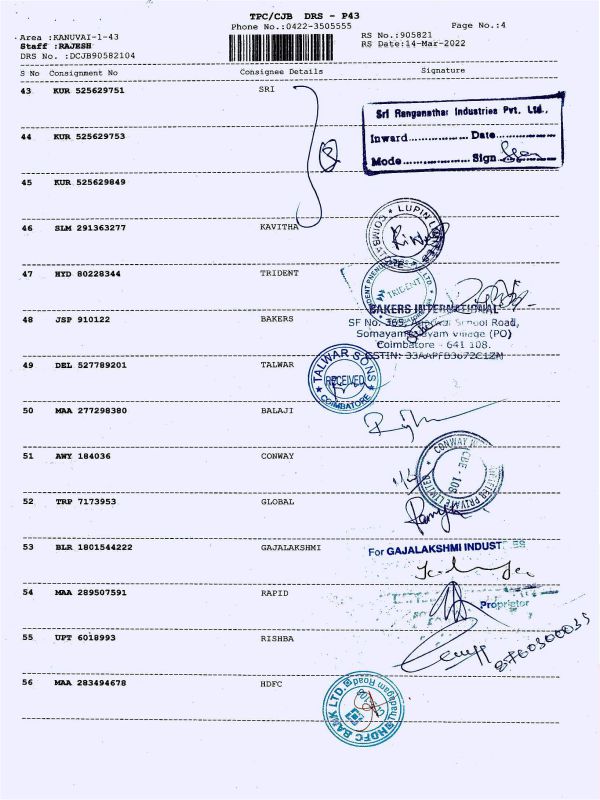 TPC/CJB DRS - P43
Phone No.:0422-3505555
Page No.:4
Area :KANUVAI-1-43
Staff :RAJESH
DRS No. :DCJB90582104
RS No.:905821
RS Date:14-Mar-2022
S No Consignment No Consignee Details Signature
43 KUR 525629751 SRI
Sri Ranganathar Industries Pvt. Ltd.,
Inward.................. Date..................
Mode.................. Sign
44 KUR 525629753
45 KUR 525629849
46 SLM 291363277 KAVITHA
LUPIN LIMITED
47 HYD 80228344 TRIDENT
TRIDENT PNEUMATICS LTD.
TRIDENT
48 JSP 910122 BAKERS
BAKERS INTERNATIONAL
SF No. 365, School Road,
Village (PO)
Coimbatore - 641 108.
GSTIN: 33AAPFB3672C1ZM
49 DEL 527789201 TALWAR
TALWAR SONS
RECEIVED
COIMBATORE
50 MAA 277298380 BALAJI
51 AWY 184036 CONWAY
CONWAY
CBE - 108
PRIVATE LIMITED
52 TRP 7173953 GLOBAL
53 BLR 1801544222 GAJALAKSHMI
For GAJALAKSHMI INDUSTRIES
54 MAA 289507591 RAPID
Proprietor
55 UPT 6018993 RISHBA
56 MAA 283494678 HDFC
HDFC BANK LTD.